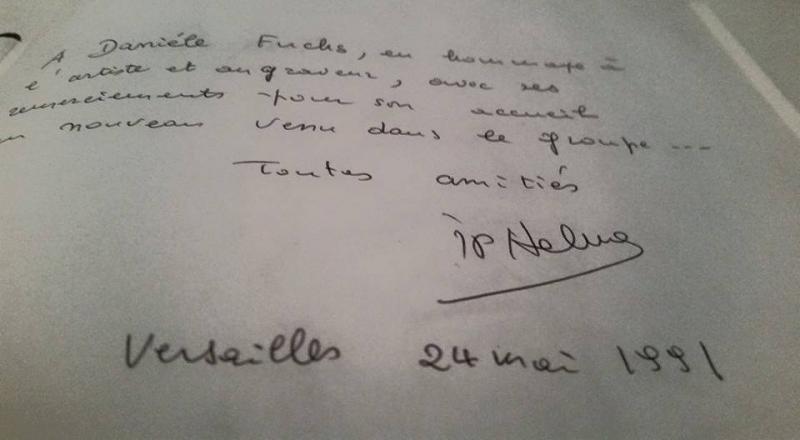 A Danièle Fuchs, en hommage à
l'artiste et au graveur, avec ses
remerciements pour son accueil
nouveau venu dans le groupe ...
Toutes amitiés
Versailles 24 mai 1991